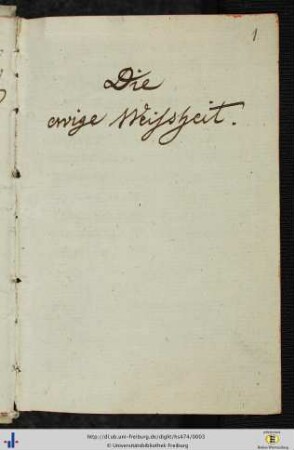 1
Die
ewige Weißheit.
http://dl.ub.uni-freiburg.de/diglit/hs474/0003
© Universitätsbibliothek Freiburg